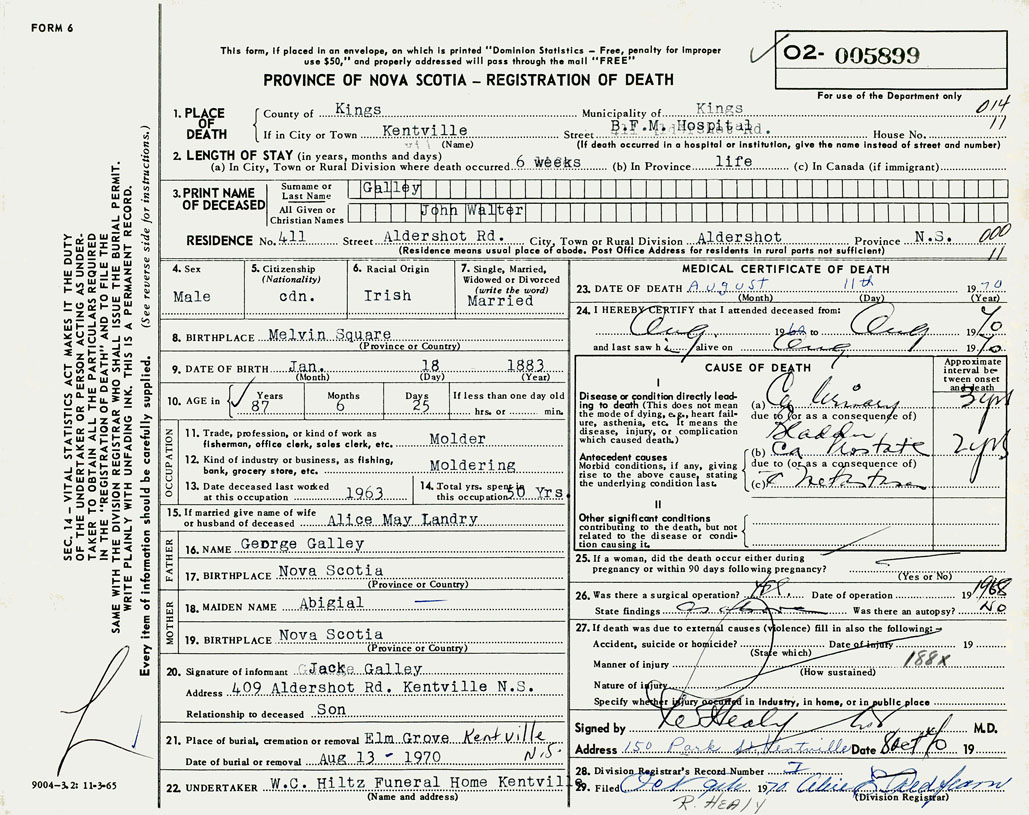 FORM 6
This form, if placed in an envelope, on which is printed "Dominion Statistics – Free, penalty for improper
use $50," and properly addressed will pass through the mail "FREE"
PROVINCE OF NOVA SCOTIA – REGISTRATION OF DEATH
02- 005899
For use of the Department only
014
11
1. PLACE OF DEATH
County of Kings Municipality of Kings
If in City or Town Kentville Street B.F.M. Hospital House No.
(Name) (If death occurred in a hospital or institution, give the name instead of street and number)
2. LENGTH OF STAY (in years, months and days)
(a) In City, Town or Rural Division where death occurred 6 weeks (b) In Province life (c) In Canada (if immigrant)
3. PRINT NAME OF DECEASED
Surname or Last Name Galley
All Given or Christian Names John Walter
RESIDENCE No. 411 Street Aldershot Rd. City, Town or Rural Division Aldershot Province N.S.
(Residence means usual place of abode. Post Office Address for residents in rural parts not sufficient)
000
11
4. Sex
Male
5. Citizenship
(Nationality)
cdn.
6. Racial Origin
Irish
7. Single, Married,
Widowed or Divorced
(write the word)
Married
8. BIRTHPLACE Melvin Square
(Province or Country)
9. DATE OF BIRTH Jan. 18 1883
(Month) (Day) (Year)
10. AGE in Years Months Days If less than one day old
87 6 25 hrs. or min.
OCCUPATION
11. Trade, profession, or kind of work as
fisherman, office clerk, sales clerk, etc. Molder
12. Kind of industry or business, as fishing,
bank, grocery store, etc. Moldering
13. Date deceased last worked
at this occupation 1963
14. Total yrs. spent in
this occupation 50 Yrs.
15. If married give name of wife
or husband of deceased Alice May Landry
FATHER
16. NAME George Galley
17. BIRTHPLACE Nova Scotia
(Province or Country)
MOTHER
18. MAIDEN NAME Abigial —
19. BIRTHPLACE Nova Scotia
(Province or Country)
20. Signature of informant Jack Galley
Address 409 Aldershot Rd. Kentville N.S.
Relationship to deceased Son
21. Place of burial, cremation or removal Elm Grove Kentville
N.S.
Date of burial or removal Aug 13 - 1970
22. UNDERTAKER W.C. Hiltz Funeral Home Kentville
(Name and address)
MEDICAL CERTIFICATE OF DEATH
23. DATE OF DEATH August 11th 1970
(Month) (Day) (Year)
24. I HEREBY CERTIFY that I attended deceased from:
Aug 19 to Aug 1970
and last saw him alive on Aug 1970
CAUSE OF DEATH
Approximate
interval be-
tween onset
and death
I
Disease or condition directly lead-
ing to death (This does not
mean the mode of dying, e.g., heart failure,
asthenia, etc. It means the
disease, injury, or complication
which caused death.)
(a) Ca Urinary 3 yrs
due to (or as a consequence of)
Bladder
(b) Ca Prostate 2 yrs
Antecedent causes
Morbid conditions, if any, giving
rise to the above cause, stating
the underlying condition last.
due to (or as a consequence of)
(c)
II
Other significant conditions
contributing to the death, but not
related to the disease or condi-
tion causing it.
25. If a woman, did the death occur either during
pregnancy or within 90 days following pregnancy?
(Yes or No)
26. Was there a surgical operation? yes Date of operation 1968
State findings as above Was there an autopsy? No
27. If death was due to external causes (violence) fill in also the following:
Accident, suicide or homicide? Date of injury 19
(State which)
188X
Manner of injury
(How sustained)
Nature of injury
Specify whether injury occurred in Industry, in home, or in public place
Signed by Healy M.D.
Address 150 Park St Kentville Date 8 Oct 70 19
28. Division Registrar's Record Number
29. Filed Oct 9th 1970 Alice
(Division Registrar)
R. HEALY
SEC. 14 – VITAL STATISTICS ACT MAKES IT THE DUTY
OF THE UNDERTAKER OR PERSON ACTING AS UNDER-
TAKER TO OBTAIN ALL THE PARTICULARS REQUIRED
IN THE "REGISTRATION OF DEATH" AND TO FILE THE
SAME WITH THE DIVISION REGISTRAR WHO SHALL ISSUE THE BURIAL PERMIT.
WRITE PLAINLY WITH UNFADING INK. THIS IS A PERMANENT RECORD.
Every item of information should be carefully supplied. (See reverse side for instructions.)
9004-3.2: 11-3-65